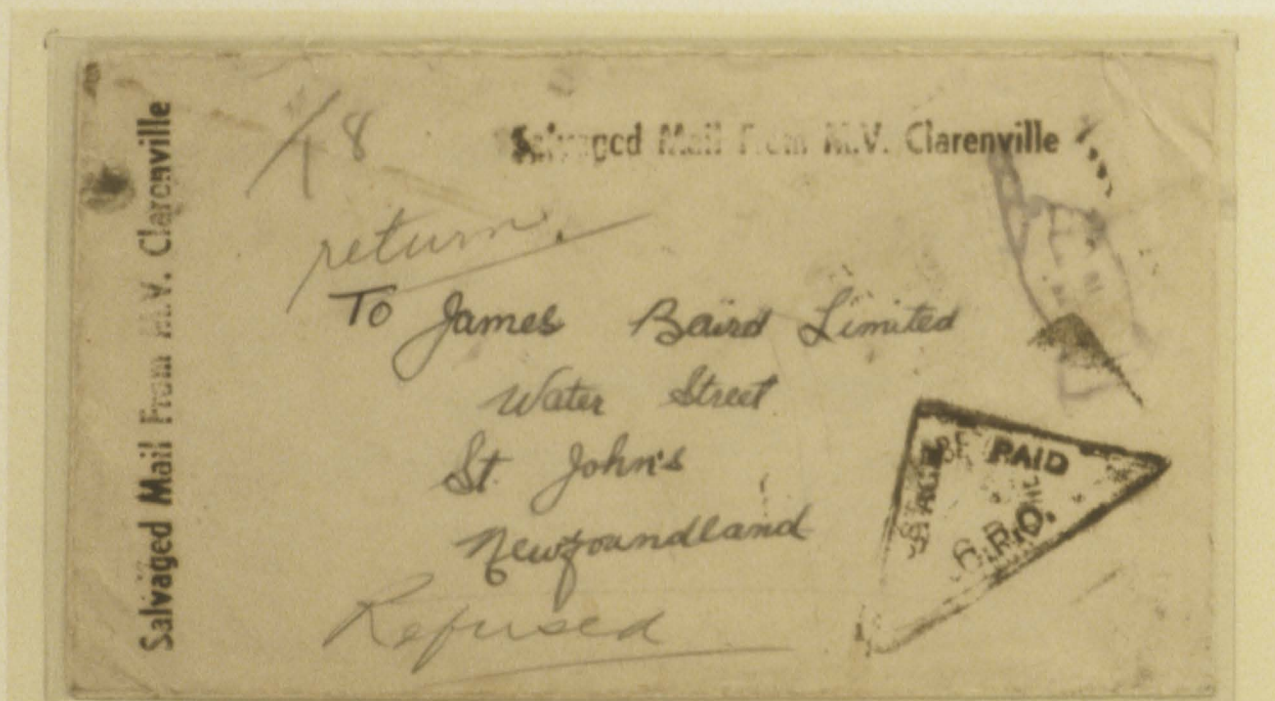 Salvaged Mail From M.V. Clarenville
Salvaged Mail From M.V. Clarenville
18
return
To James Baird Limited
Water Street
St. John's
Newfoundland
Refused
PAID